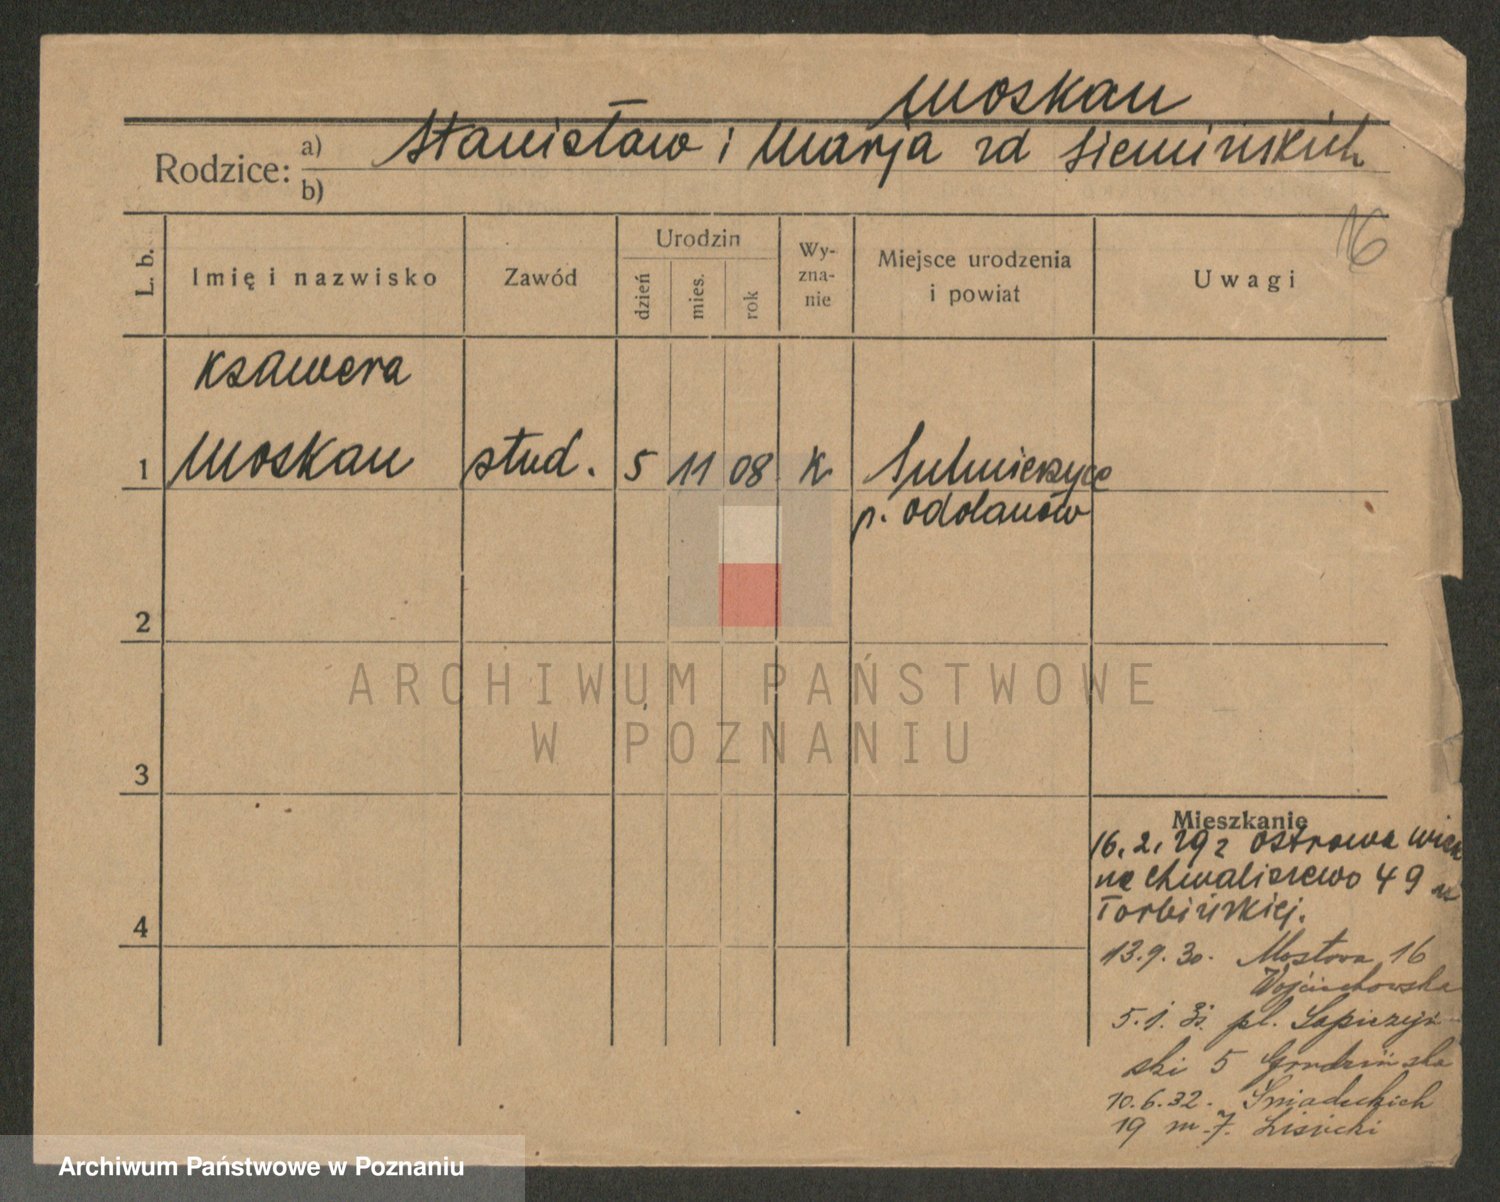 Moskau
Rodzice: a) Stanisław i Marja zd Siemińskich
b)
16
L. b.
Imię i nazwisko
Zawód
Urodzin
dzień
mies.
rok
Wy-
zna-
nie
Miejsce urodzenia
i powiat
Uwagi
Ksawera
1 Moskau stud. 5 11 08 K Sulmierzyce
p. Odolanów
2
ARCHIWUM PAŃSTWOWE
W POZNANIU
3
Mieszkanie
16. 2. 29 z Ostrowa Wiek
na Chwaliszewo 49 u
Torbińskiej.
4
13. 9. 30. Mostowa 16
Wojciechowska
5. 1. 31. pl. Sapieżyń-
ski 5 Grudzińska
10. 6. 32. Śniadeckich
19 m. 7. Lisiecki
Archiwum Państwowe w Poznaniu